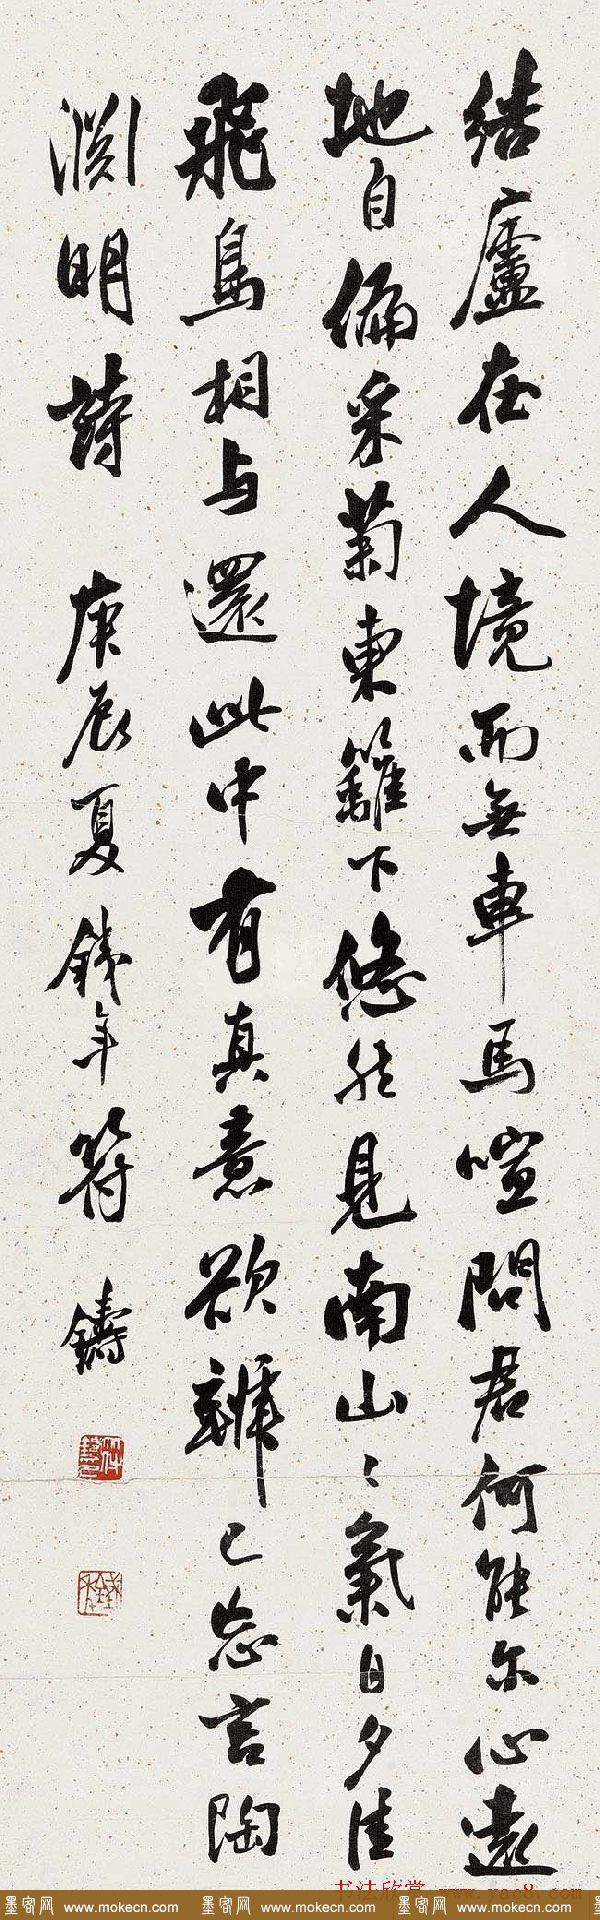 结廬在人境而无車馬喧問君何能尔心遠
地自偏采菊東籬下悠然見南山〻氣日夕佳
飛鳥相与還此中有真意欲辨已忘言陶
渊明詩 庚辰夏 鐵年符 鑄
书法欣赏 www.yac8.com
墨客网 www.mokecn.com 墨客网 www.mokecn.com 墨客网 www.mokecn.com